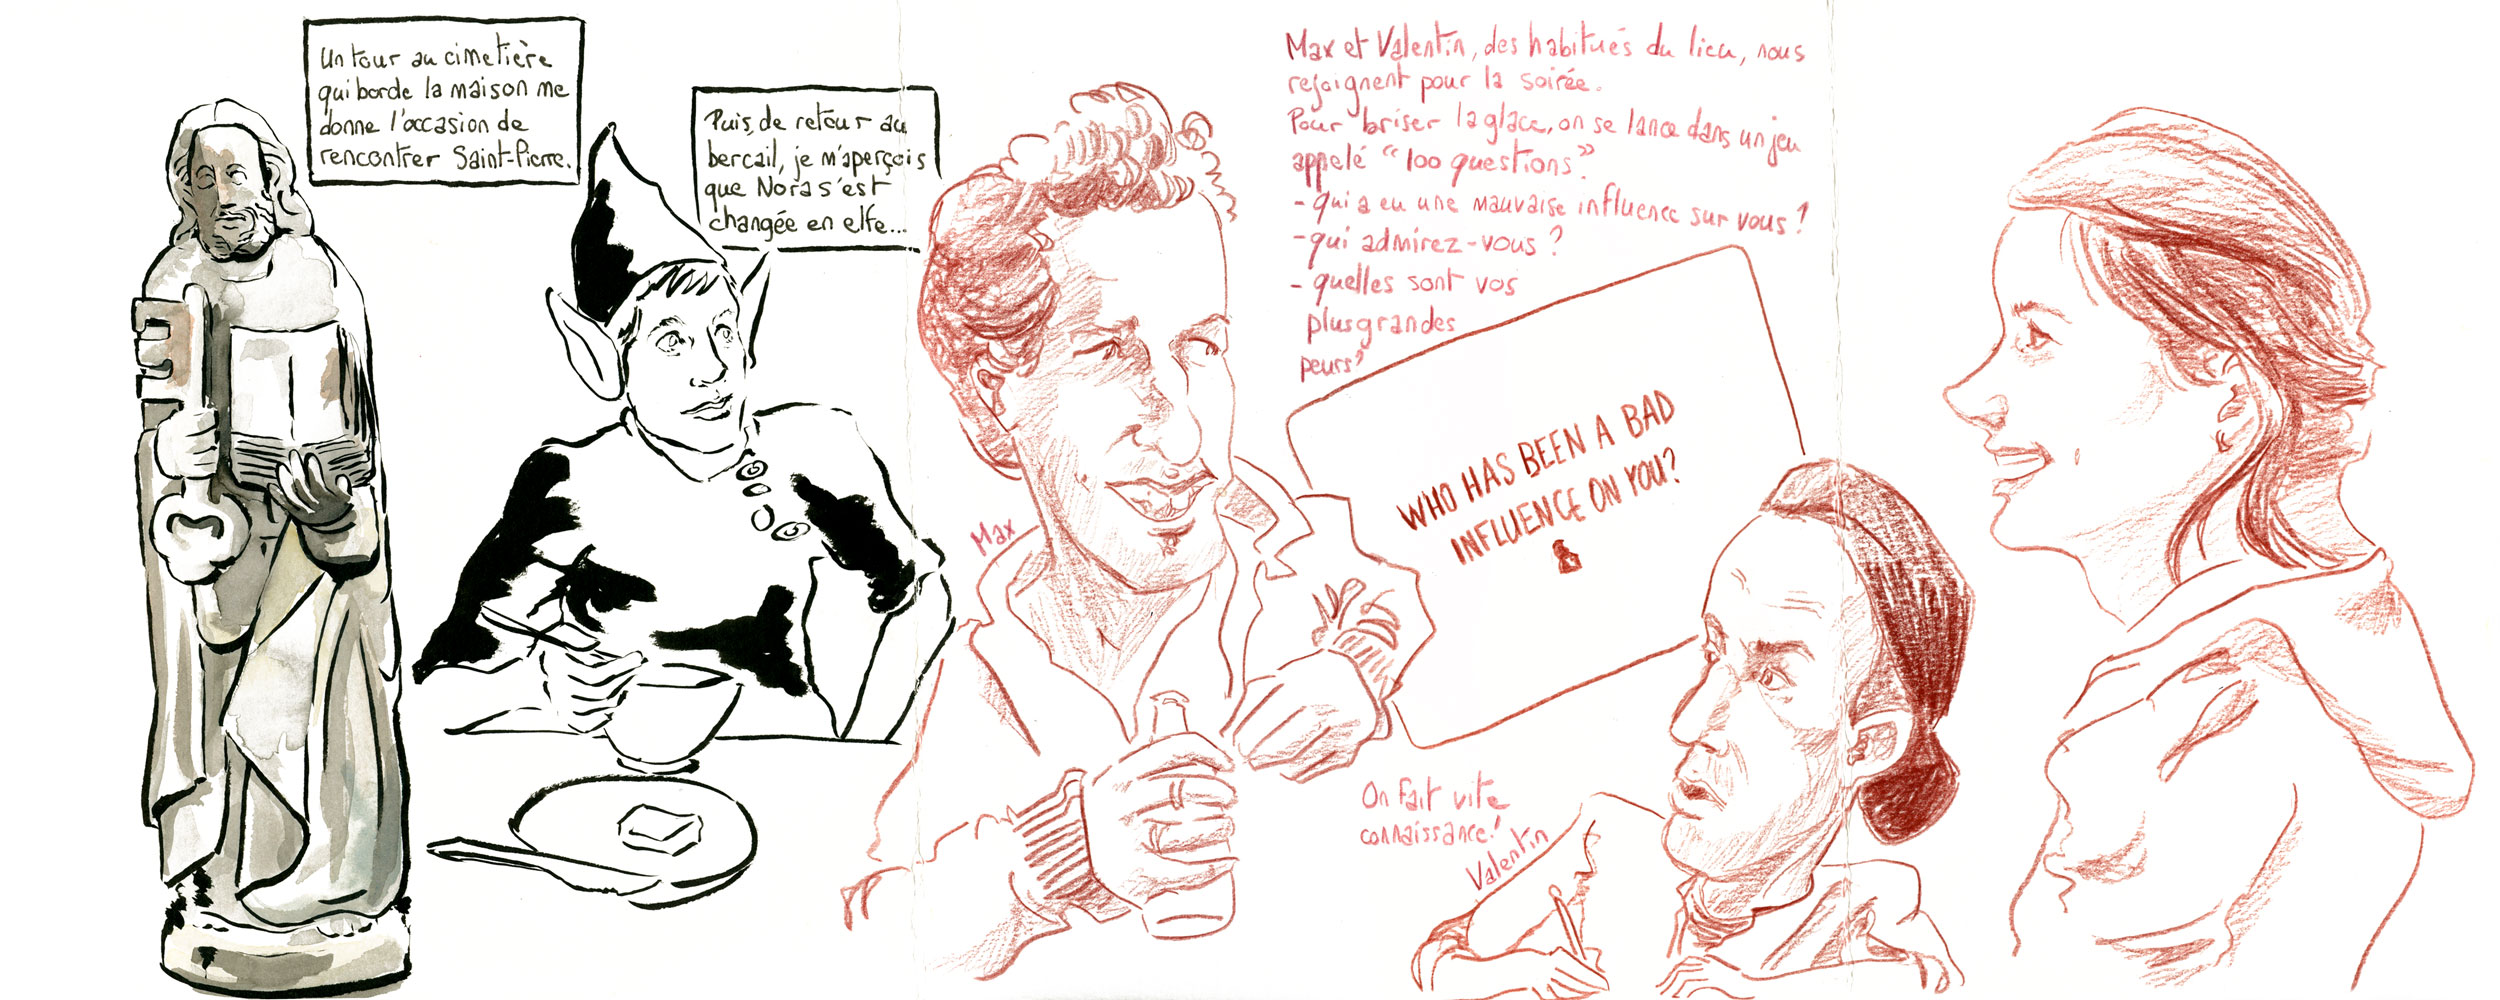 Un tour au cimetière
qui borde la maison me
donne l'occasion de
rencontrer Saint-Pierre.
Puis, de retour au
bercail, je m'aperçois
que Nora s'est
changée en elfe...
Max et Valentin, des habitués du lieu, nous
rejoignent pour la soirée.
Pour briser la glace, on se lance dans un jeu
appelé "100 questions".
- qui a eu une mauvaise influence sur vous ?
- qui admirez-vous ?
- quelles sont vos
plus grandes
peurs ?
Max
WHO HAS BEEN A BAD
INFLUENCE ON YOU?
On fait vite
connaissance !
Valentin